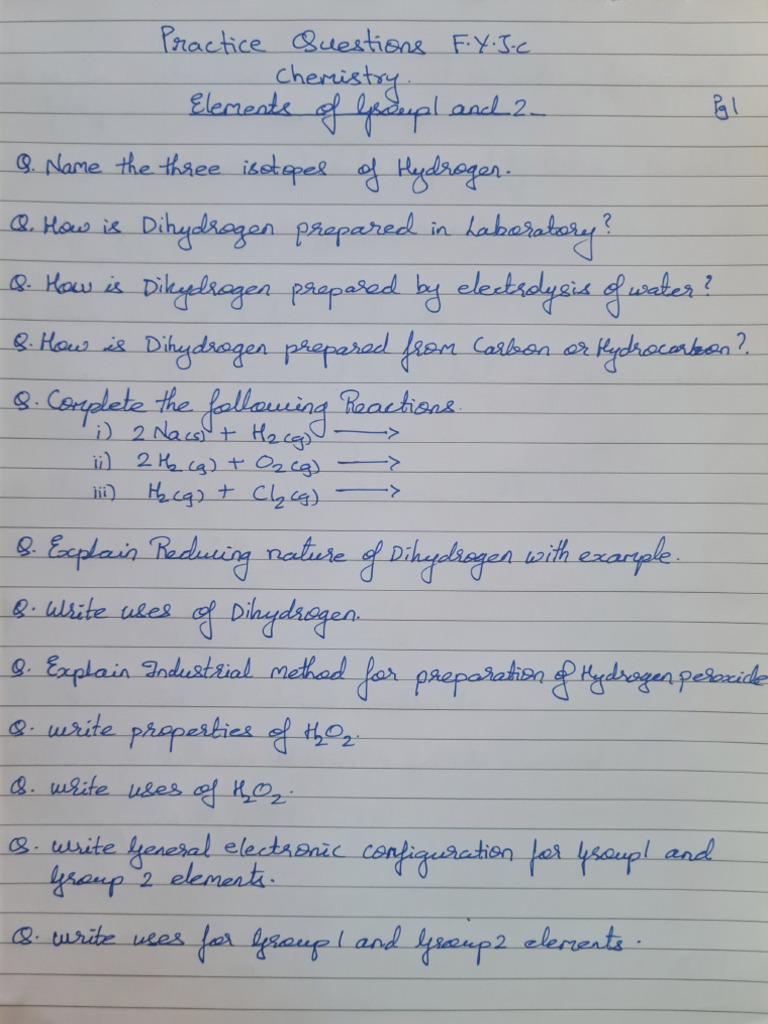 Practice Questions F.Y.J.C
Chemistry.
Elements of Group1 and 2
Pg 1
Q. Name the three isotopes of Hydrogen.
Q. How is Dihydrogen prepared in Laboratory?
Q. How is Dihydrogen prepared by electrolysis of water?
Q. How is Dihydrogen prepared from Carbon or Hydrocarbon?
Q. Complete the following Reactions.
i) 2Na(s) + H₂(g) ⟶
ii) 2H₂(g) + O₂(g) ⟶
iii) H₂(g) + Cl₂(g) ⟶
Q. Explain Reducing nature of Dihydrogen with example.
Q. Write uses of Dihydrogen.
Q. Explain Industrial method for preparation of Hydrogen peroxide
Q. write properties of H₂O₂.
Q. write uses of H₂O₂.
Q. write General electronic configuration for Group1 and
Group 2 elements.
Q. write uses for Group1 and Group2 elements.